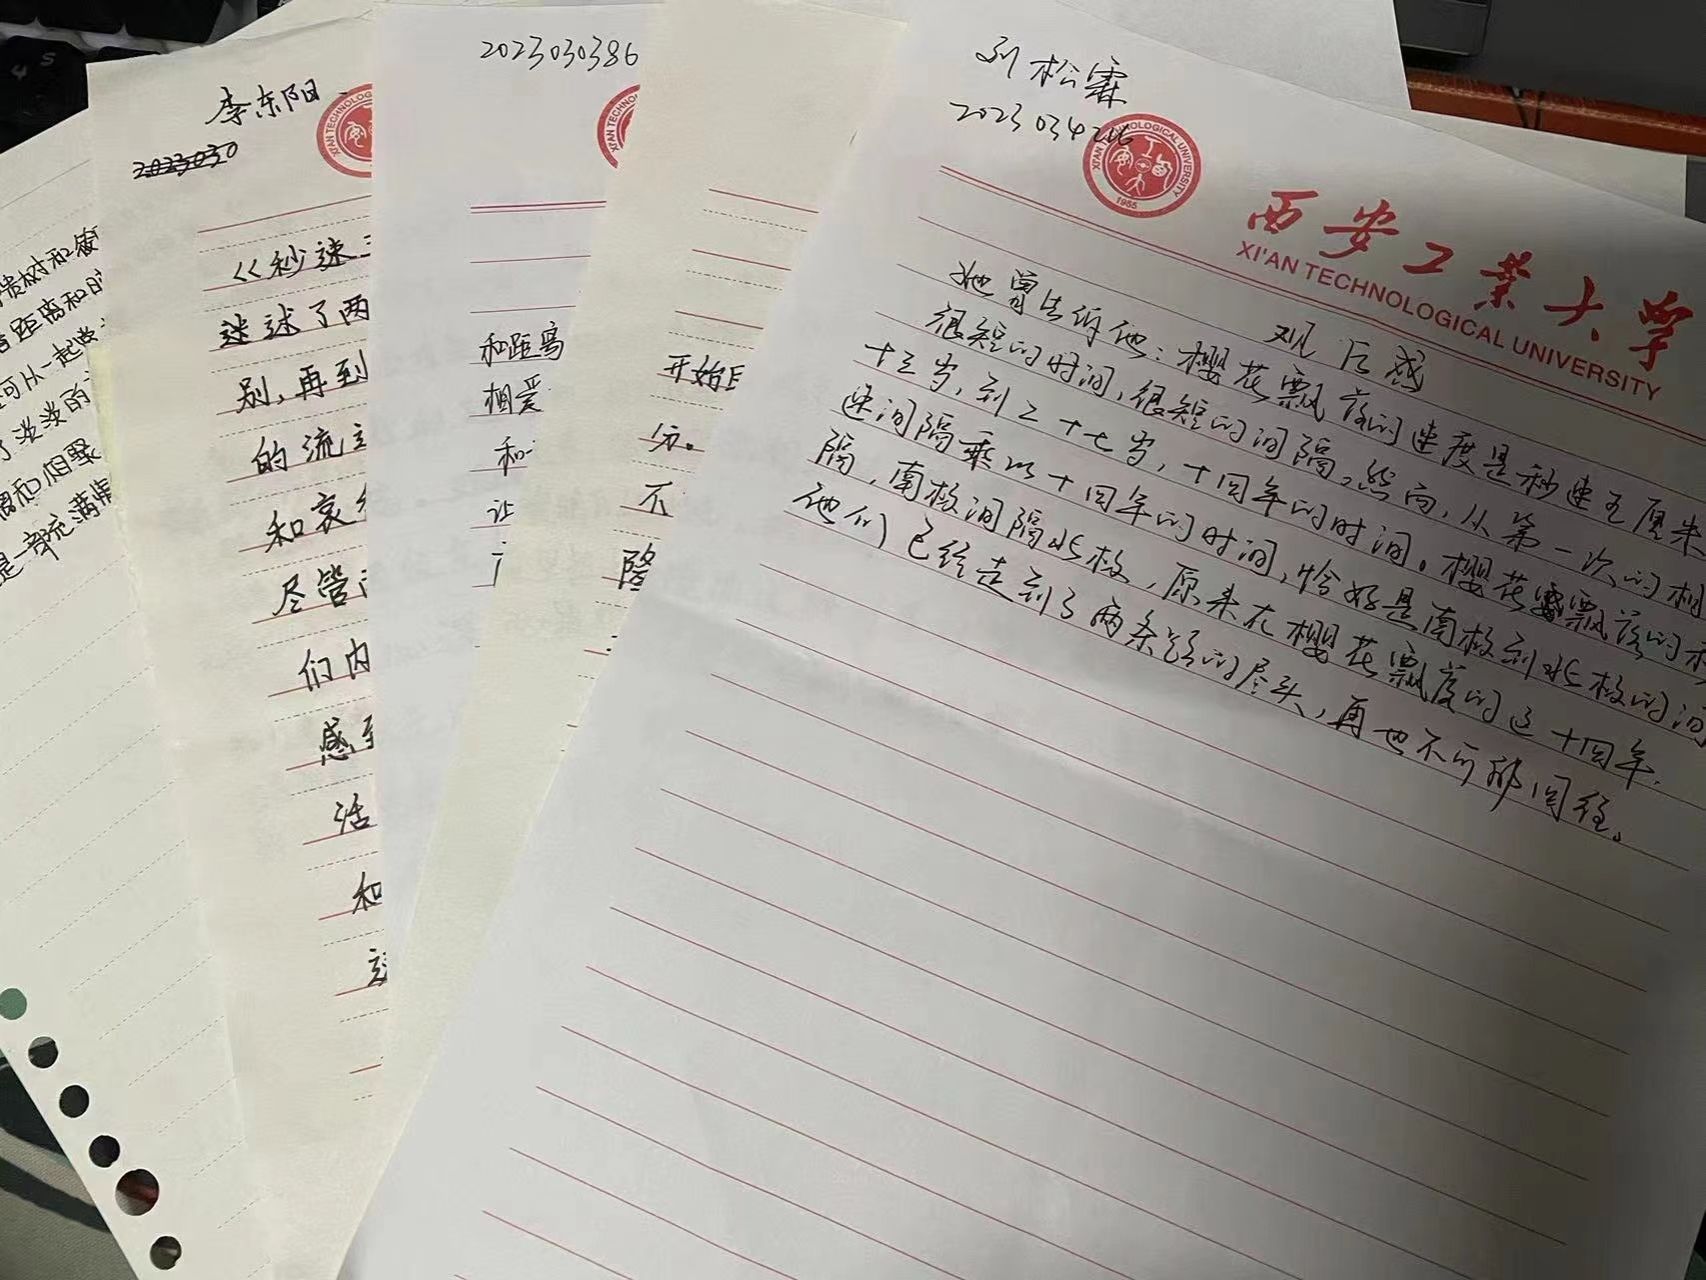 刘松霖
2023034216
XI'AN TECHNOLOGICAL UNIVERSITY
1955
西安工业大学
XI'AN TECHNOLOGICAL UNIVERSITY
观后感
她曾告诉他：樱花飘落的速度是秒速五厘米
很短的时间，很短的间隔。然而，从第一次的相
十三岁，到二十七岁，十四年的时间。樱花飘落的秒
速间隔乘以十四年的时间，恰好是南极到北极的间
隔，南极间隔北极，原来在樱花飘度的这十四年，
他们已经走到了两条路的尽头，再也不可能回往。
开始
分。
不
隆
2023030386
XI'AN TECHN
和距离
相爱
和
让
李东阳
2023030
XI'AN TECHNOLOG
《秒速
述了两
别，再到
的流
和哀
尽管
们内
感到
活
和
贵树和
距离和
可从一起
淡淡的
而相聚
是一部充满